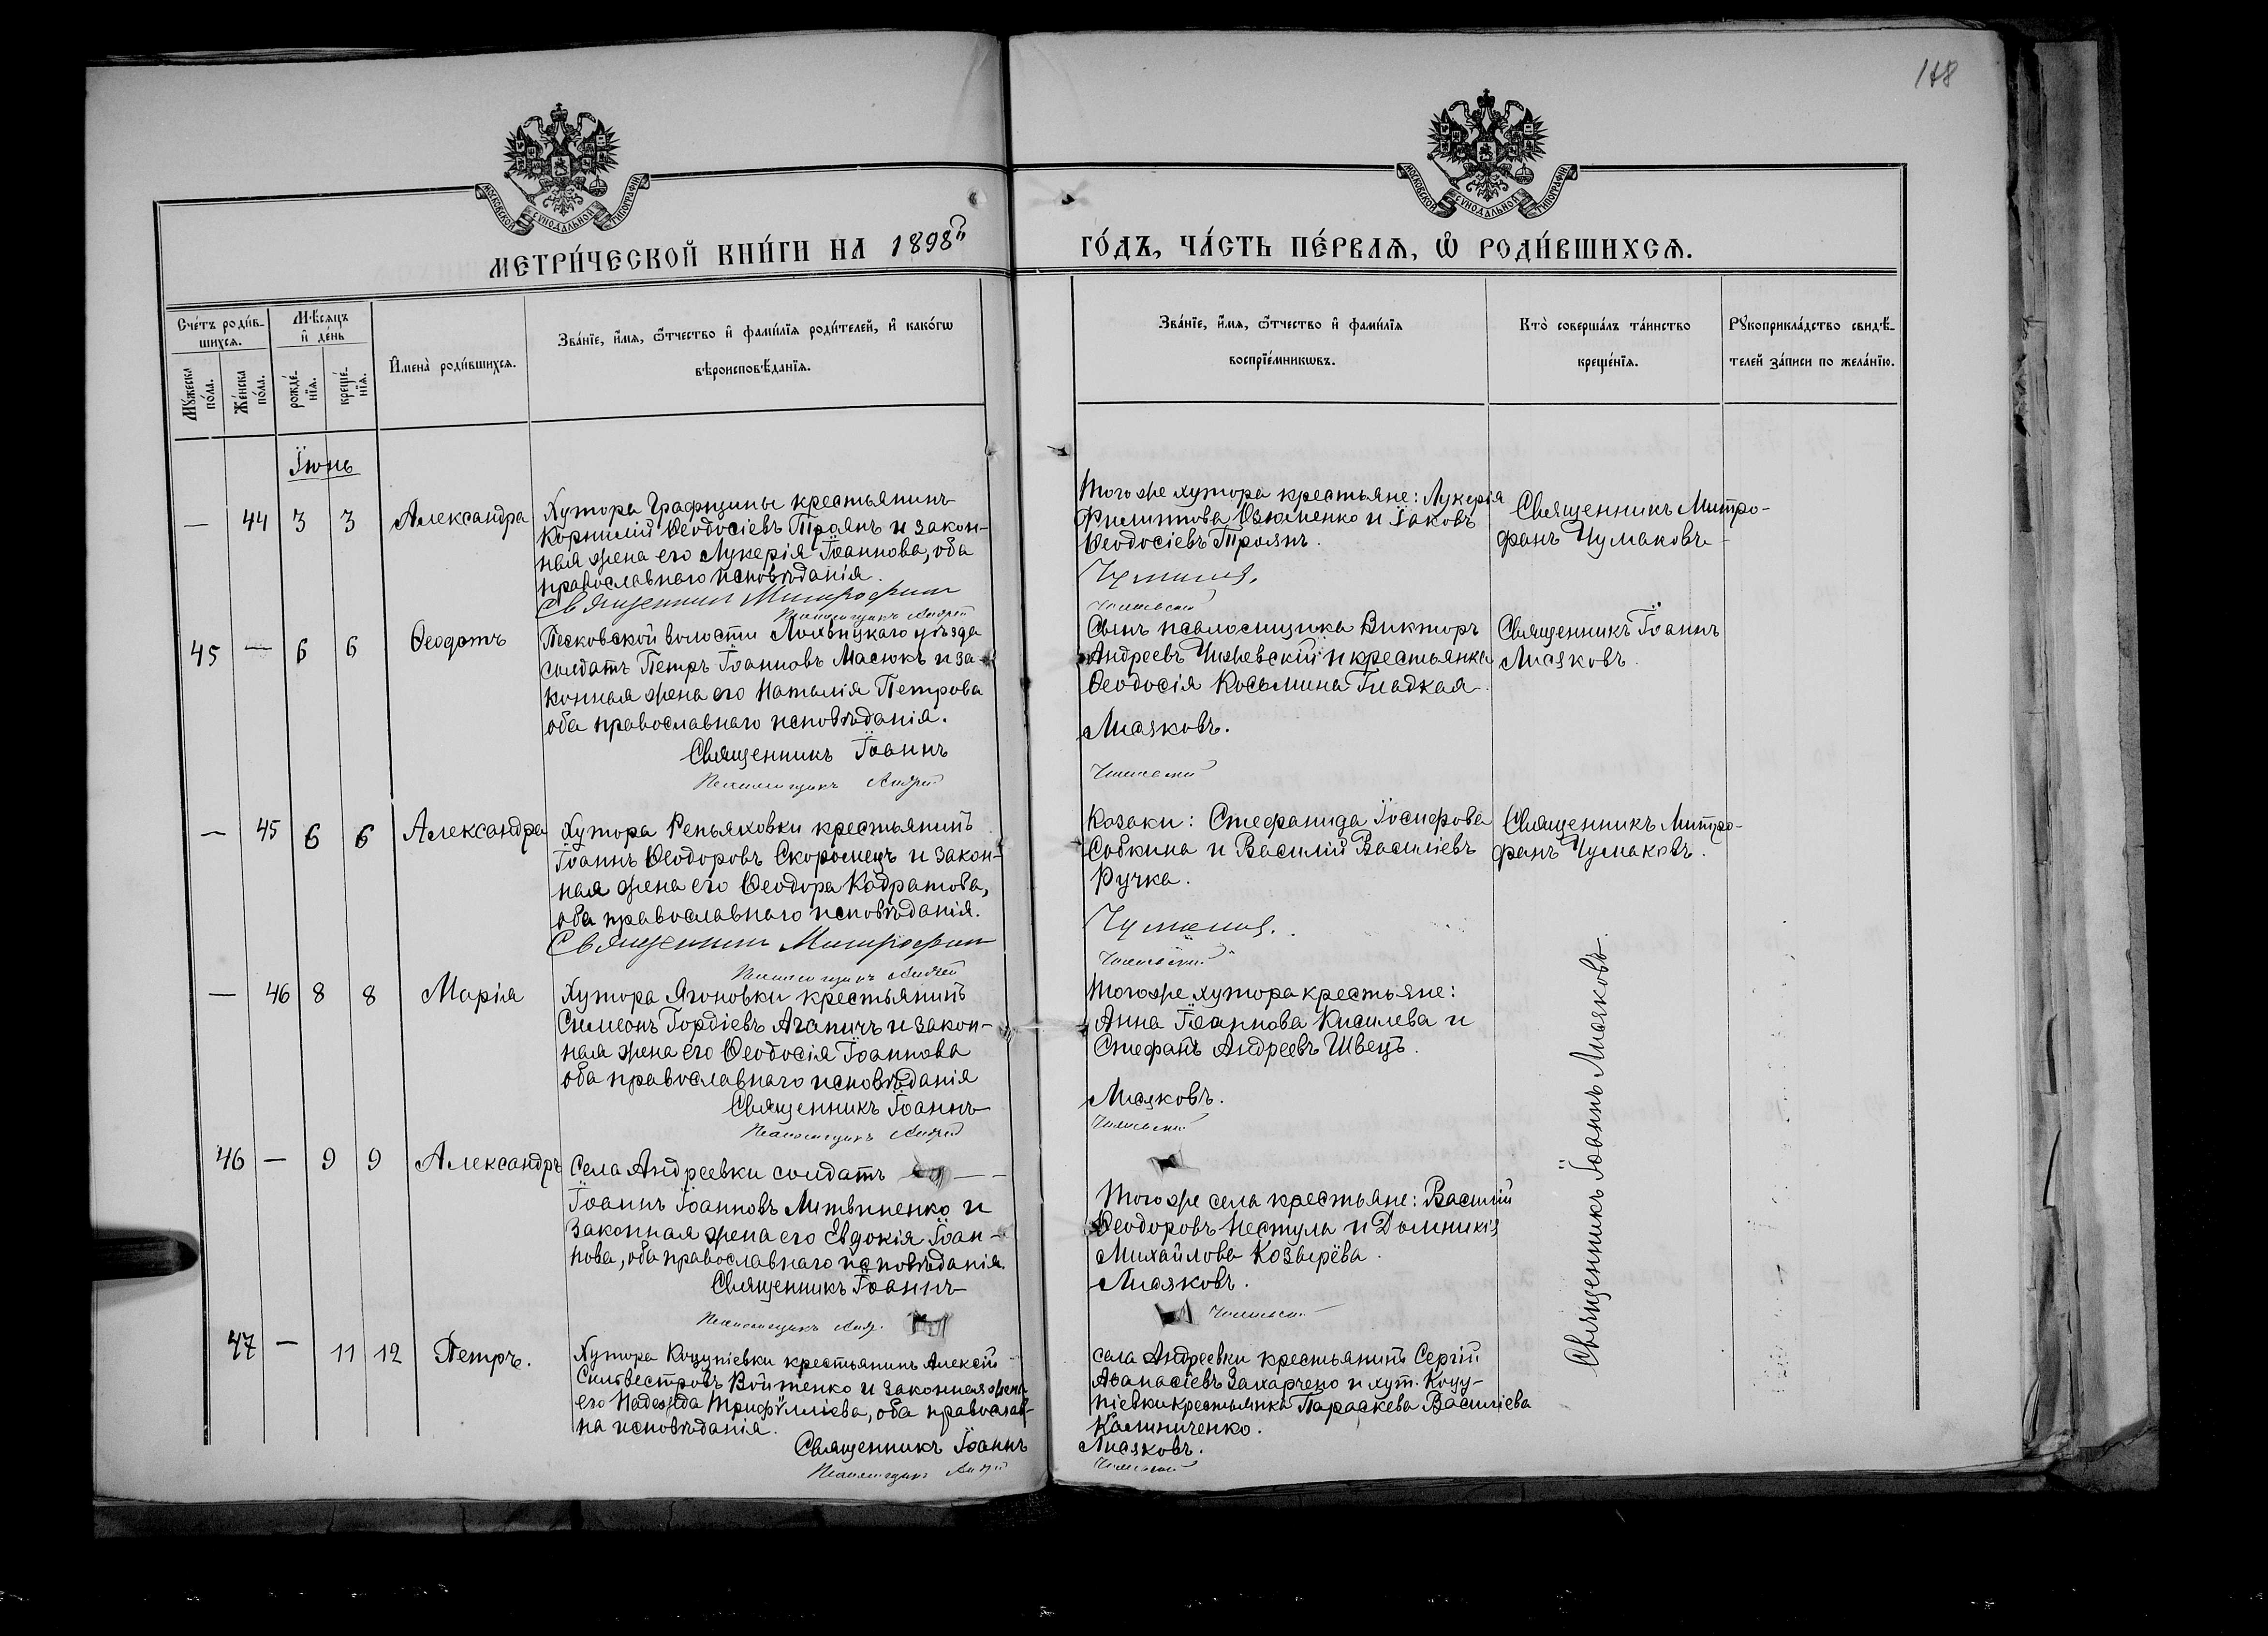 148
МОСКОВСКОЙ СѴНОДАЛЬНОЙ ТИПОГРАФІИ
МОСКОВСКОЙ СѴНОДАЛЬНОЙ ТИПОГРАФІИ
МЕТРИ́ЧЕСКОЙ КНИ́ГИ НА 1898й ГО́ДЪ, ЧА́СТЬ ПЕ́РВАѦ, Ѡ҆ РОДИ́ВШИХСѦ.
Сче́тъ роди́в-
шихсѧ.
Мꙋ́жеска
по́ла.
Же́нска
по́ла.
Мѣ́сѧцъ
и҆ де́нь
рожде́-
нїѧ.
креще́-
нїѧ.
И҆мена̀ роди́вшихсѧ.
Зва́нїе, и҆́мѧ, ѻ҆́тчество и҆ фами́лїѧ роди́телей, и҆ како́гѡ
вѣроисповѣ́данїѧ.
Зва́нїе, и҆́мѧ, ѻ҆́тчество и҆ фами́лїѧ
воспрїе́мникѡвъ.
Кто̀ соверша́лъ та́инство
креще́нїѧ.
Рꙋкоприкла́дство свидѣ́-
телей за́писи по жела́нїю.
Іюнь
— 44 3 3 Александра
Хутора Графщины крестьянинъ
Корнилій Ѳеодосіевъ Троянъ и закон-
ная жена его Лукерія Іоаннова, оба
православнаго исповѣданія.
Священник Митрофан
Псаломщикъ Андрей
Того же хутора крестьяне: Лукерія
Филиппова и Іаковъ
Ѳеодосіевъ Троянъ.
Чумаков.
Чижевский
Священникъ Митро-
фанъ Чумаковъ
45 — 6 6 Ѳеодотъ
Песковской волости Лохвицкаго уѣзда
солдатъ Петръ Іоанновъ Масюкъ и за-
конная жена его Наталія Петрова
оба православнаго исповѣданія.
Священникъ Іоаннъ
Псаломщикъ Андрей
Сынъ псаломщика Викторъ
Андреевъ Чижевскій и крестьянка
Ѳеодосія Косьмина Гладкая.
Лисяковъ.
Чижевский
Священникъ Іоаннъ
Лисяковъ.
— 45 6 6 Александра
Хутора Репьяховки крестьянинъ
Іоаннъ Ѳеодоровъ Скоромецъ и закон-
ная жена его Ѳеодора Кодратова,
оба православнаго исповѣданія.
Священник Митрофан
Псаломщикъ Андрей
Козаки: Стефанида Іосифова
Собкина и Василій Василіевъ
Ручка.
Чумаков.
Чижевский
Священникъ Митро-
фанъ Чумаковъ.
— 46 8 8 Марія
Хутора Ягоновки крестьянинъ
Симеонъ Гордіевъ Аганичъ и закон-
ная жена его Ѳеодосія Іоаннова
оба православнаго исповѣданія
Священникъ Іоаннъ
Псаломщикъ Андрей
Того же хутора крестьяне:
Анна Іоаннова Кисилева и
Стефанъ Андреевъ Швецъ.
Лисяковъ.
Чижевский
46 — 9 9 Александръ
Села Андреевки солдатъ
Іоаннъ Іоанновъ Литвиненко и
законная жена его Евдокія Іоан-
нова, оба православнаго исповѣданія.
Священникъ Іоаннъ
Псаломщикъ Анд.
Того же села крестьяне: Василій
Ѳеодоровъ Нестула и Домникія
Михайлова Козырёва.
Лисяковъ.
Чижевский
Священникъ Іоаннъ Лисяковъ.
47 — 11 12 Петръ.
Хутора Коцупіевки крестьянинъ Алексій
Сильвестровъ Войтенко и законная жена
его Надежда Трифилліева, оба православ-
на исповѣданія.
Священникъ Іоаннъ
Псаломщикъ Андрей
села Андреевки крестьянинъ Сергій
Аѳанасіевъ Захарчено и хут. Коцу-
піевки крестьянка Параскева Василіева
Калиниченко.
Лисяковъ.
Чижевский